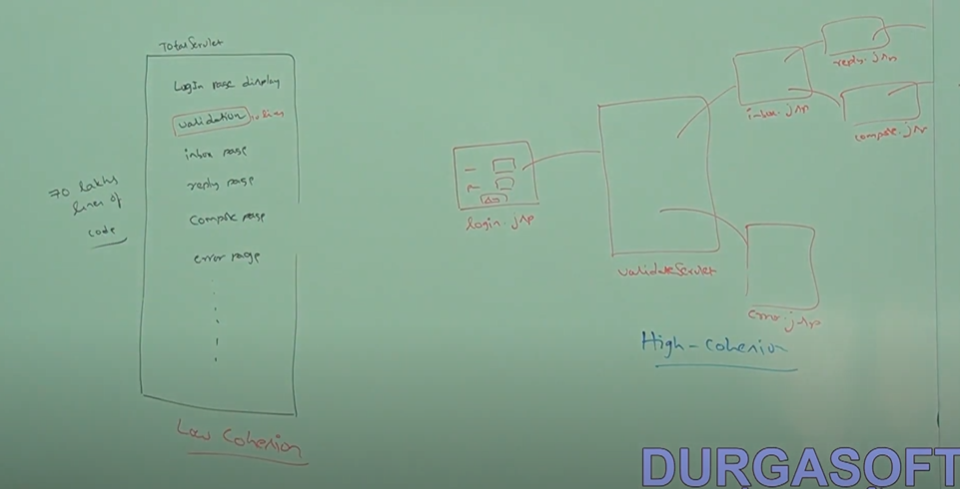 TotalServlet
LogIn page display
validation
inbox page
reply page
compose page
error page
70 lakhs
lines of
code
Low Cohesion
login.jsp
validateServlet
inbox.jsp
reply.jsp
compose.jsp
error.jsp
High-cohesion
DURGASOFT